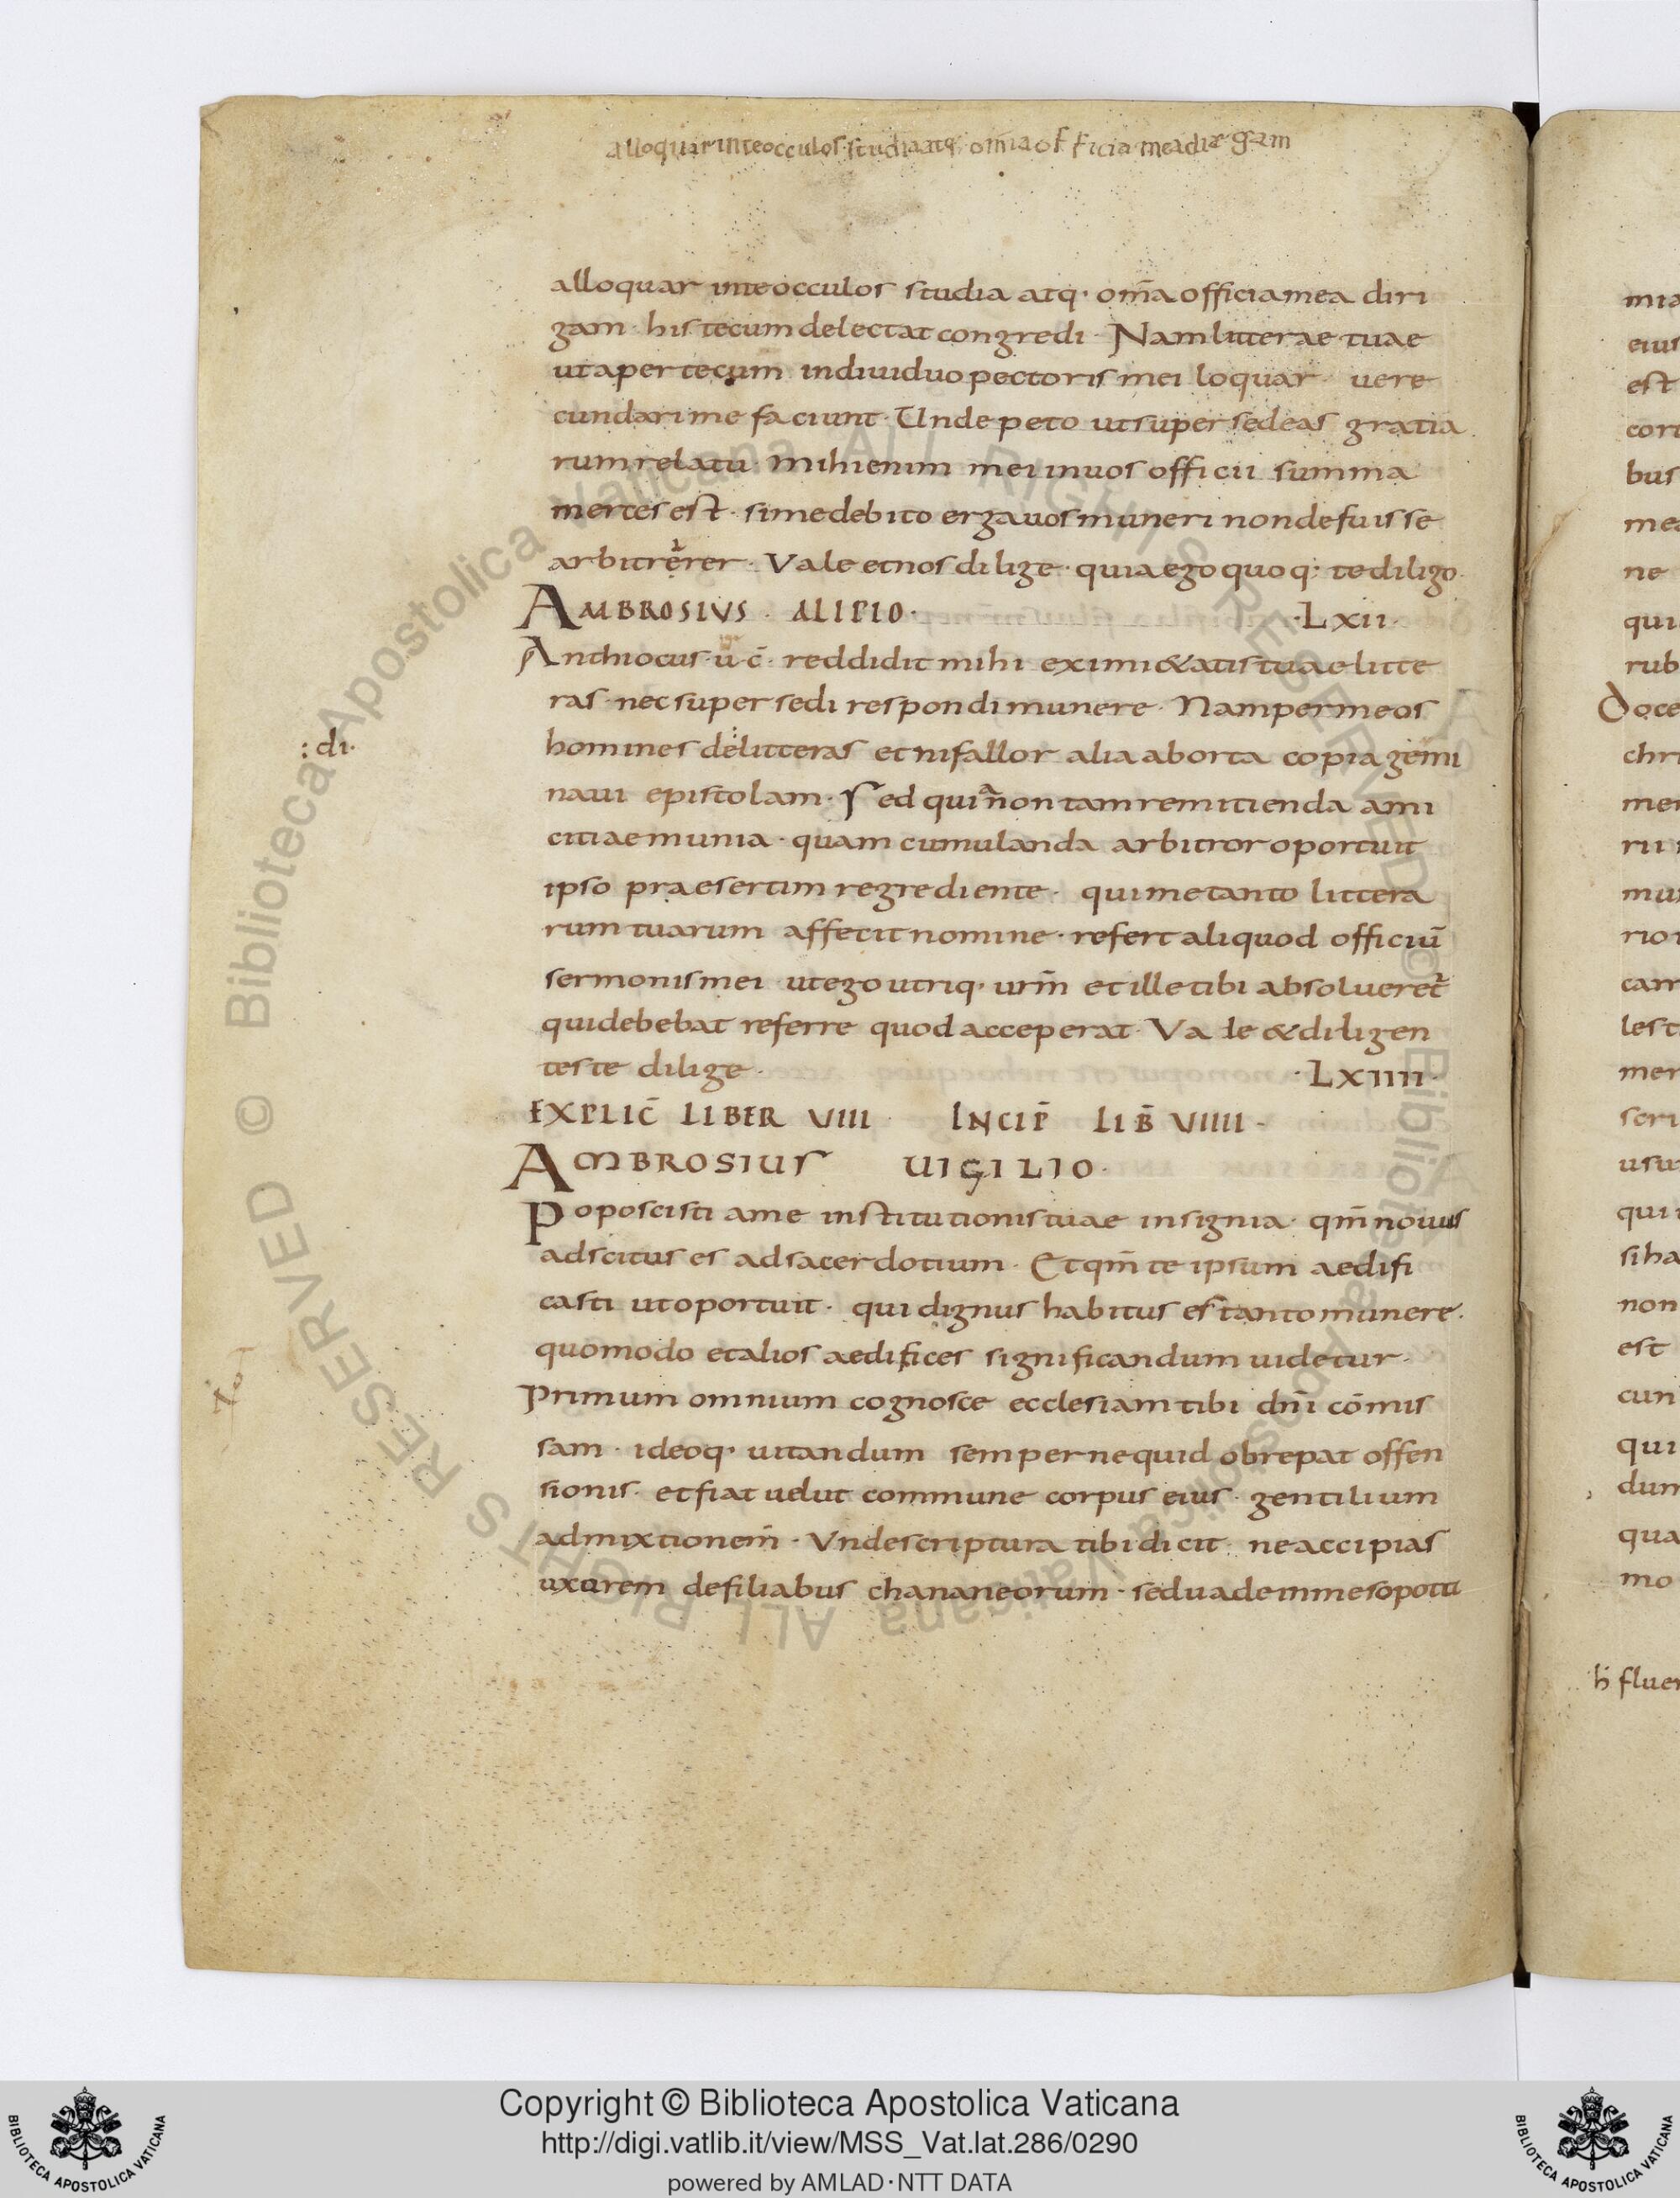 alloquar inteocculos studia atq; om̄ia officia mea diregam
alloquar inteocculos studia atq· om̄a officiamea diri
gam· his tecum delectat congredi· Nam litterae tuae
ut aper tecum individuo pectoris mei loquar· uere
cundari me faciunt· Unde peto ut supersedeas gratia
rum relatu· mihi enim mei in uos officii summa
merces est· si me debito erga uos muneri non defuisse
arbitrer er· Vale et nos dilige· quia ego quoq: te diligo·
AMBROSIUS· ALIPIO· ·LXII·
Anthiocus· u· c̄· reddidit mihi eximi&atis tuae litte
ras· nec supersedi respondi munere· Nam per meos
:di·
homines de litteras et ni fallor alia aborta copia gemi
naui epistolam· Sed quia non tam remitienda ami
citiae munia· quam cumulanda arbitror oportuit
ipso praesertim regrediente· qui me tanto littera
rum tuarum affecit nomine· refert aliquod officiū
sermonis mei ut ego utriq· urm̄ et ille tibi absolueret
qui debebat referre quod acceperat· Vale & diligen
tes te dilige· ·LXIIII·
EXPLIC̄ LIBER VIII· INCIP̄ LIB̄ VIIII·
AMBROSIUS UIGILIO·
Poposcisti a me institutionis tuae insignia· qm̄ nouus
adscitus es ad sacerdotium· Et qm̄ te ipsum aedifi
casti ut oportuit· qui dignus habitus es tanto munere·
quomodo et alios aedifices significandum uidetur·
Primum omnium cognosce ecclesiam tibi dn̄i cōmis
sam· ideoq· uitandum semper ne quid obrepat offen
sionis· et fiat uelut commune corpus eius· gentilium
admixtionem̄· Unde scriptura tibi dicit· ne accipias
uxorem de filiabus chananeorum· sed uade in mesopota
mia
eius
est
cor
bus
mea
ne
qui
rub
doce
chri
mer
rii
mun
rio
cam
lest
mer
scri
usu
qui
siha
non
est
cun
qui
dum
qua
mo
h̄ fluen
© Biblioteca Apostolica Vaticana ALL RIGHTS RESERVED
© Biblioteca Apostolica Vaticana ALL RIGHTS RESERVED
Copyright © Biblioteca Apostolica Vaticana
http://digi.vatlib.it/view/MSS_Vat.lat.286/0290
powered by AMLAD·NTT DATA
BIBLIOTECA APOSTOLICA VATICANA
BIBLIOTECA APOSTOLICA VATICANA